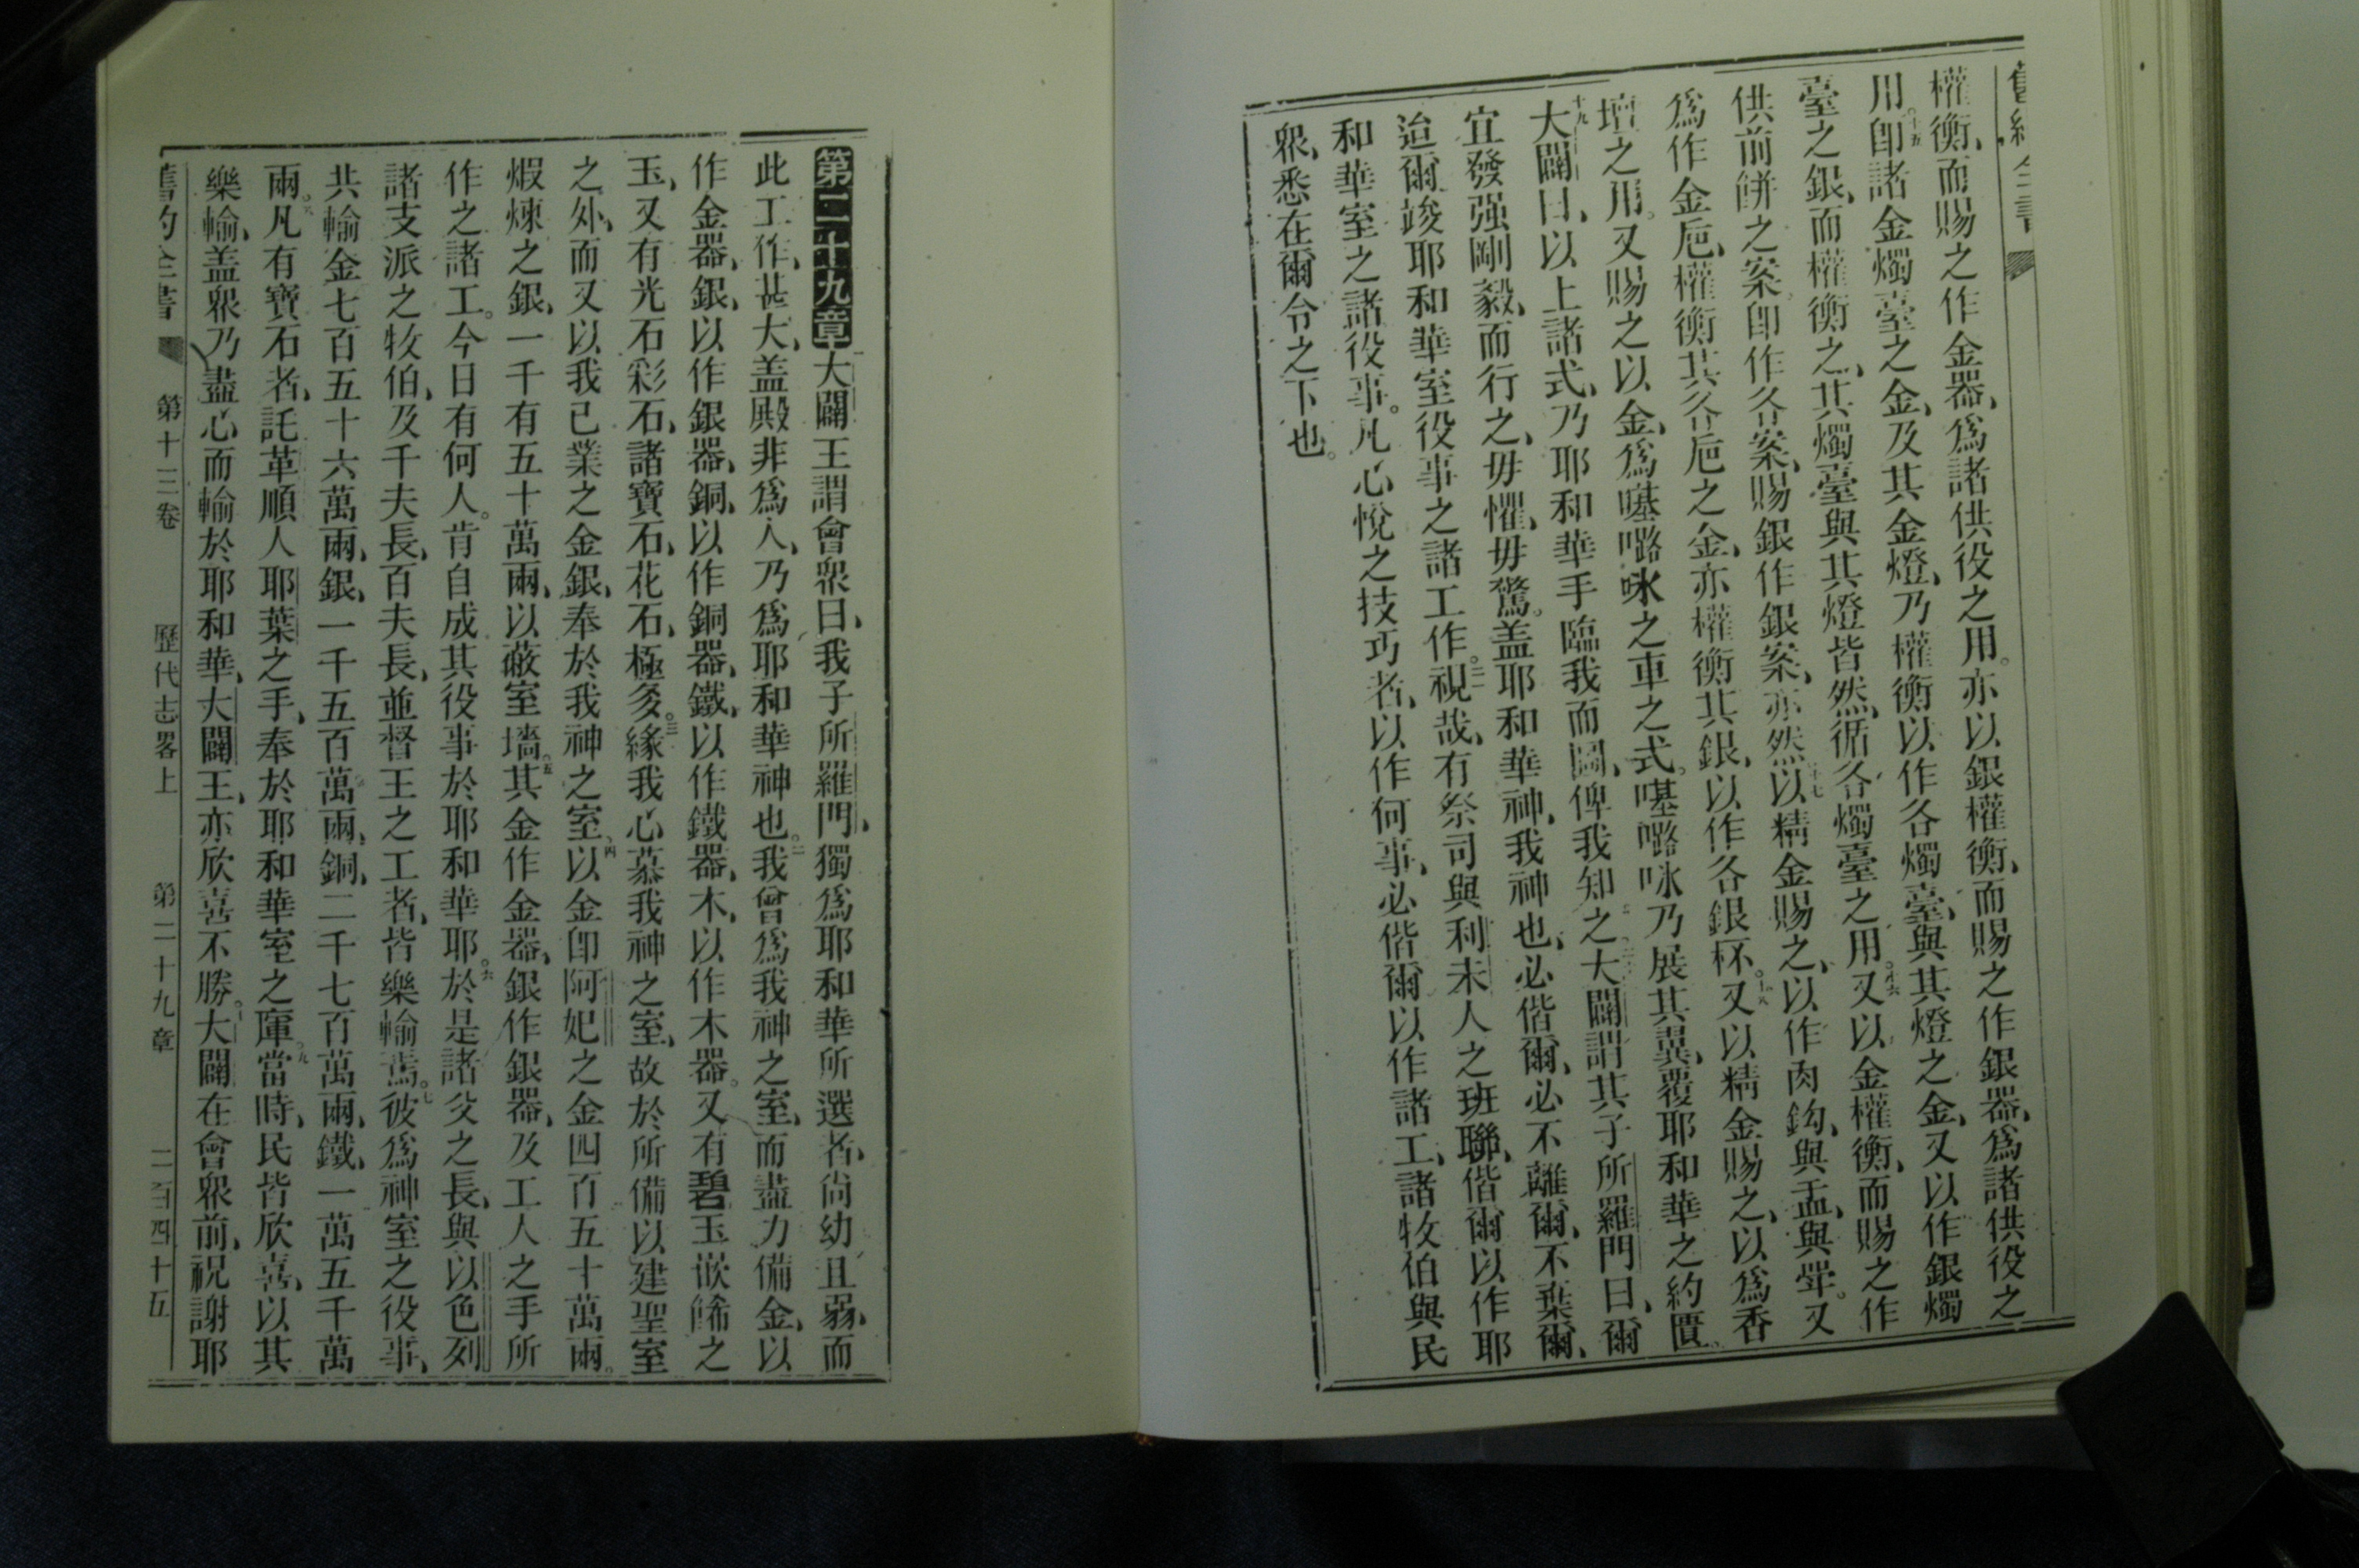 權衡、而賜之作金器、爲諸供役之用。亦以銀權衡、而賜之作銀器、爲諸供役之
用。十五卽諸金燭臺之金、及其金燈、乃權衡以作各燭臺、與其燈之金、又以作銀燭
臺之銀、而權衡之、其燭臺與其燈皆然、循各燭臺之用。十六又以金權衡、而賜之作
供前餅之案、卽作各案、賜銀作銀案、亦然。十七以精金賜之、以作肉鈎、與盂、與斝。又
爲作金巵、權衡其各巵之金、亦權衡其銀、以作各銀杯。十八又以精金賜之、以爲香
壇之用。又賜之以金、爲𠼪嚕咏之車之式。𠼪嚕咏乃展其翼、覆耶和華之約匱。
十九大闢曰、以上諸式、乃耶和華手臨我而圖、俾我知之。二十大闢謂其子所羅門曰、爾
宜發强剛毅、而行之、毋懼、毋驚。盖耶和華神、我神也、必偕爾、必不離爾、不棄爾、
迨爾竣耶和華室役事之諸工作。二一視哉、有祭司與利未人之班聯、偕爾以作耶
和華室之諸役事。凡心悅之技巧者、以作何事、必偕爾以作諸工、諸牧伯與民
衆、悉在爾令之下也。
第二十九章 大闢王謂會衆曰、我子所羅門、獨爲耶和華所選者、尙幼且弱、而
此工作甚大、盖殿非爲人、乃爲耶和華神也。二我曾爲我神之室、而盡力備金、以
作金器、銀、以作銀器、銅、以作銅器、鐵、以作鐵器、木、以作木器。又有碧玉嵌飾之
玉、又有光石彩石、諸寶石、花石、極多。三緣我心慕我神之室、故於所備以建聖室
之外、而又以我己業之金銀、奉於我神之室、四以金卽阿妃之金四百五十萬兩。
煆煉之銀、一千有五十萬兩、以蔽室墻。五其金作金器、銀作銀器、及工人之手所
作之諸工。今日有何人。肯自成其役事於耶和華耶。六於是諸父之長、與以色列
諸支派之牧伯、及千夫長、百夫長、並督王之工者、皆樂輸焉。七彼爲神室之役事、
共輸金七百五十六萬兩、銀、一千五百萬兩、銅、二千七百萬兩、鐵、一萬五千萬
兩。八凡有寶石者、託革順人耶葉之手、奉於耶和華室之庫。九當時、民皆欣喜、以其
樂輸、盖衆乃盡心而輸於耶和華、大闢王、亦欣喜不勝。十大闢在會衆前、祝謝耶
舊約全書 第十三卷 歷代志畧上 第二十九章 二百四十五